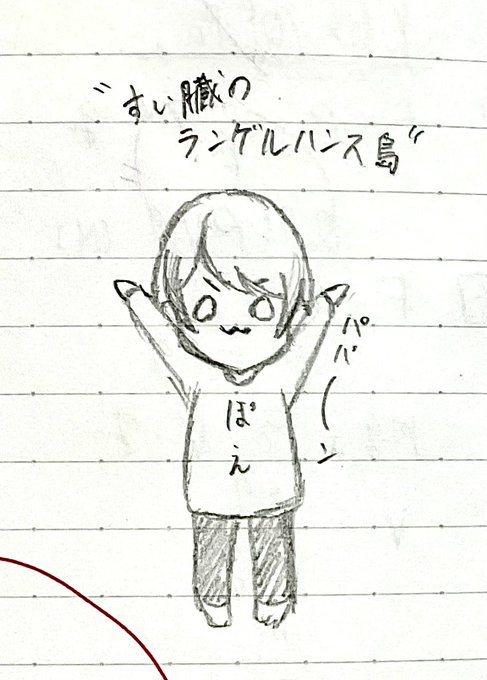 "すい臓の
ランゲルハンス島"
パパーン
ぽえ